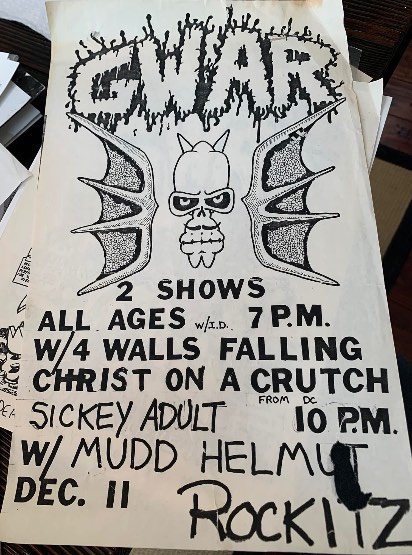 GWAR
2 SHOWS
ALL AGES W/I.D. 7 P.M.
W/4 WALLS FALLING
CHRIST ON A CRUTCH
FROM DC
SICKEY ADULT 10 P.M.
W/ MUDD HELMUT
DEC. 11
ROCKITZ